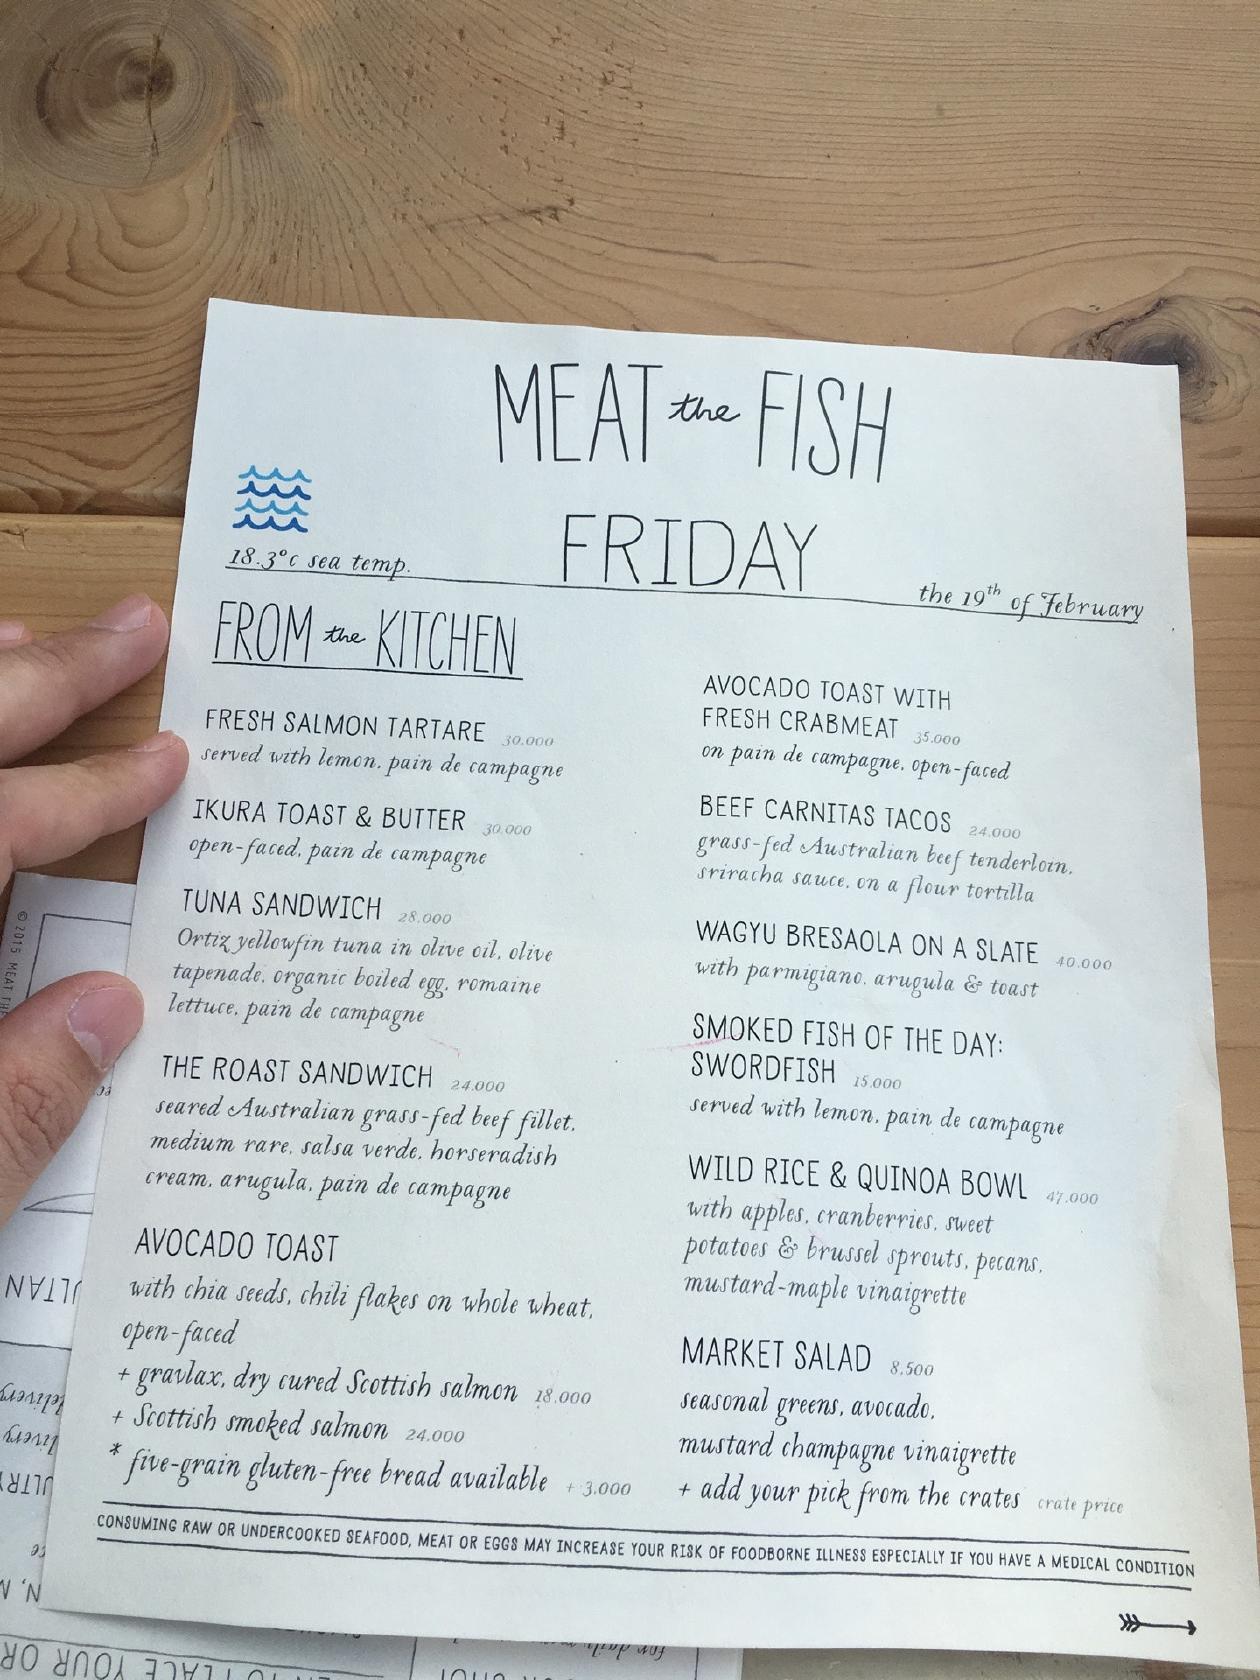 MEAT the FISH
FRIDAY
18.3°c sea temp.
the 19th of February
FROM the KITCHEN
FRESH SALMON TARTARE 30.000
served with lemon, pain de campagne
IKURA TOAST & BUTTER 30.000
open-faced, pain de campagne
TUNA SANDWICH 28.000
Ortiz yellowfin tuna in olive oil, olive
tapenade, organic boiled egg, romaine
lettuce, pain de campagne
THE ROAST SANDWICH 24.000
seared Australian grass-fed beef fillet,
medium rare, salsa verde, horseradish
cream, arugula, pain de campagne
AVOCADO TOAST
with chia seeds, chili flakes on whole wheat,
open-faced
+ gravlax, dry cured Scottish salmon 18.000
+ Scottish smoked salmon 24.000
* five-grain gluten-free bread available + 3.000
AVOCADO TOAST WITH
FRESH CRABMEAT 35.000
on pain de campagne, open-faced
BEEF CARNITAS TACOS 24.000
grass-fed Australian beef tenderloin,
sriracha sauce, on a flour tortilla
WAGYU BRESAOLA ON A SLATE 40.000
with parmigiano, arugula & toast
SMOKED FISH OF THE DAY:
SWORDFISH 15.000
served with lemon, pain de campagne
WILD RICE & QUINOA BOWL 47.000
with apples, cranberries, sweet
potatoes & brussel sprouts, pecans,
mustard-maple vinaigrette
MARKET SALAD 8,500
seasonal greens, avocado,
mustard champagne vinaigrette
+ add your pick from the crates crate price
CONSUMING RAW OR UNDERCOOKED SEAFOOD, MEAT OR EGGS MAY INCREASE YOUR RISK OF FOODBORNE ILLNESS ESPECIALLY IF YOU HAVE A MEDICAL CONDITION
© 2015 MEAT
for daily
TO PLACE YOUR OR